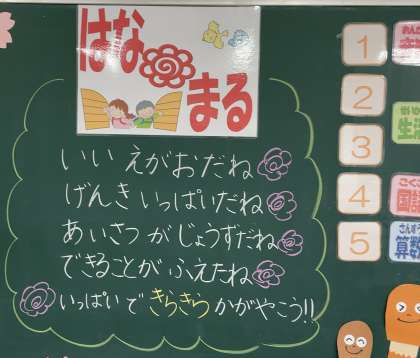 はなまる
いい えがおだね
げんき いっぱいだね
あいさつ が じょうずだね
できることが ふえたね
いっぱいで きらきら かがやこう!!
1
2
3
4
5
おんが
生活
こくご
国語
さんすう
算数